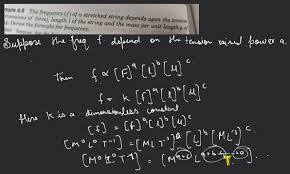 mple 4.6 The frequency (f) of a stretched string depends upon the tension
(dimensions of force), length l of the string and the mass per unit length μ
Derive the formula for frequency.
Suppose the freq f depend on the tension raised power a
Then f ∝ [F]ᵃ [l]ᵇ [μ]ᶜ
f = k [F]ᵃ [l]ᵇ [μ]ᶜ
Here k is a dimensionless constant
[f] = [F]ᵃ [l]ᵇ [μ]ᶜ
[M⁰L⁰T⁻¹] = [MLT⁻²]ᵃ [L]ᵇ [ML⁻¹]ᶜ
[M⁰L⁰T⁻¹] = [Mᵃ⁺ᶜ Lᵃ⁺ᵇ⁻ᶜ T⁻²ᵃ] ...